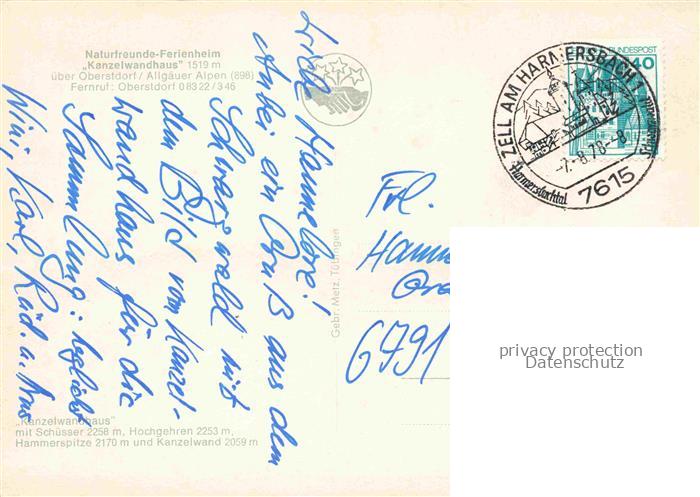 Naturfreunde-Ferienheim
„Kanzelwandhaus" 1519 m
über Oberstdorf / Allgäuer Alpen (898)
Fernruf: Oberstdorf 08322/346
Liebe Hannelore!
Anbei ein Gruß aus dem
Schwarzwald mit
dem Bild vom Kanzel-
wandhaus für die
Sammlung: herzlichst
Wini, Karl, Rüd. u.
Gebr. Metz, Tübingen
„Kanzelwandhaus"
mit Schüsser 2258 m, Hochgehren 2253 m,
Hammerspitze 2170 m und Kanzelwand 2059 m
BUNDESPOST
40
ZELL AM HARMERSBACH 1
-7.-8.78.-8
7615
Frl.
Hann
6791
privacy protection
Datenschutz